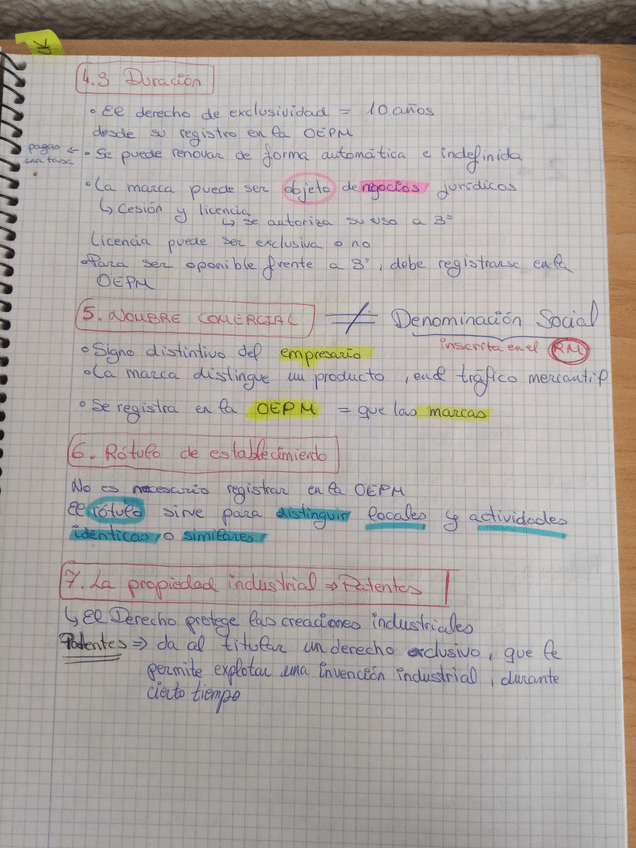 4.3 Duración
• El derecho de exclusividad = 10 años
desde su registro en la OEPM
pagas ←
una tasa
• Se puede renovar de forma automática e indefinida
• La marca puede ser objeto de negocios jurídicos
↳ Cesión y licencia
↳ se autoriza su uso a 3º
Licencia puede ser exclusiva o no
• Para ser oponible frente a 3º, debe registrarse en la
OEPM
5. NOMBRE COMERCIAL ≠ Denominación Social
inscrita en el RM
• Signo distintivo del empresario
• La marca distingue un producto, en el tráfico mercantil
• Se registra en la OEPM = que las marcas
6. Rótulo de establecimiento
No es necesario registrar en la OEPM
El rótulo sirve para distinguir locales y actividades
identicas o similares
7. La propiedad industrial ⇒ Patentes
↳ El Derecho protege las creaciones industriales
Patentes ⇒ da al titular un derecho exclusivo, que le
permite explotar una invención industrial, durante
cierto tiempo